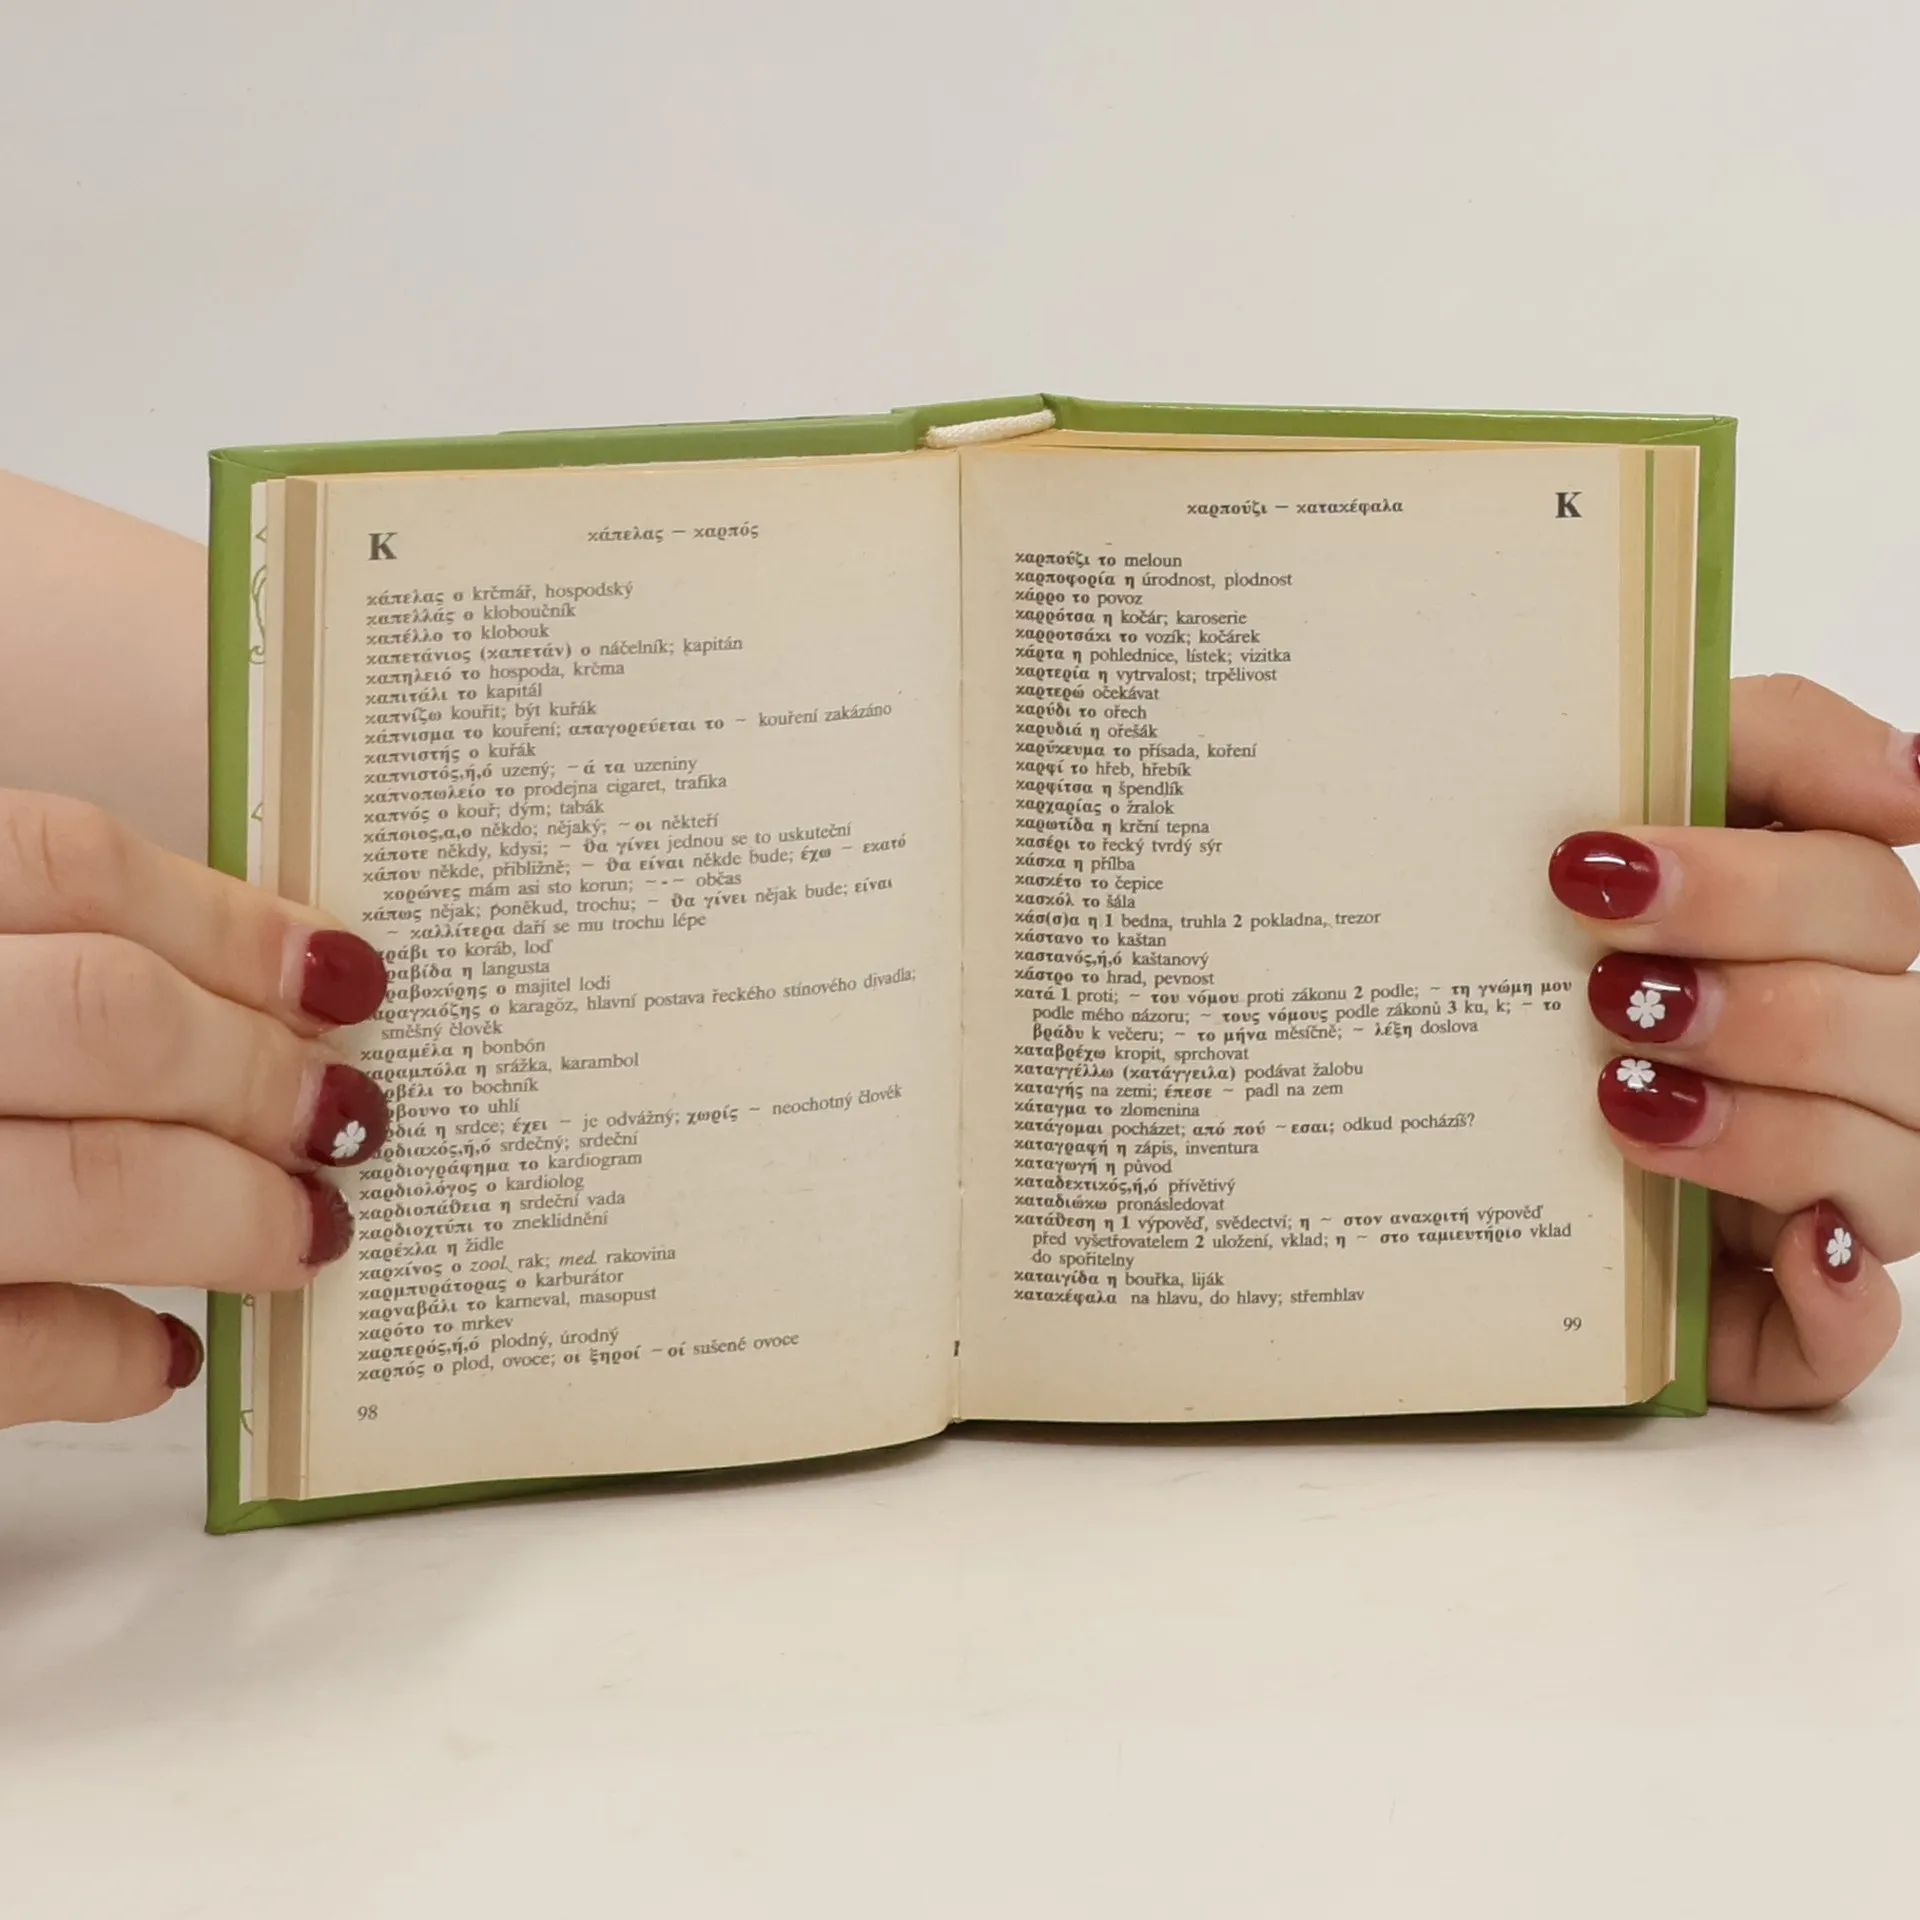 K
κάπελας — καρπός
κάπελας ο krčmář, hospodský
καπελλάς ο kloboučník
καπέλλο το klobouk
καπετάνιος (καπετάν) ο náčelník; kapitán
καπηλειό το hospoda, krčma
καπιτάλι το kapitál
καπνίζω kouřit; být kuřák
κάπνισμα το kouření; απαγορεύεται το ~ kouření zakázáno
καπνιστής ο kuřák
καπνιστός,ή,ό uzený; ~ά τα uzeniny
καπνοπωλείο το prodejna cigaret, trafika
καπνός ο kouř; dým; tabák
κάποιος,α,ο někdo; nějaký; ~οι někteří
κάποτε někdy, kdysi; ~ θα γίνει jednou se to uskuteční
κάπου někde, přibližně; ~ θα είναι někde bude; έχω ~ εκατό
κορώνες mám asi sto korun; ~-~ občas
κάπως nějak; poněkud, trochu; ~ θα γίνει nějak bude; είναι
~ καλλίτερα daří se mu trochu lépe
ράβι το koráb, loď
ραβίδα η langusta
ραβοκύρης ο majitel lodi
αραγκιόζης ο karagöz, hlavní postava řeckého stínového divadla;
směšný člověk
καραμέλα η bonbón
καραμπόλα η srážka, karambol
ρβέλι το bochník
ρβουνο το uhlí
ρδιά η srdce; έχει ~ je odvážný; χωρίς ~ neochotný člověk
αρδιακός,ή,ό srdečný; srdeční
καρδιογράφημα το kardiogram
καρδιολόγος ο kardiolog
καρδιοπάθεια η srdeční vada
καρδιοχτύπι το zneklidnění
καρέκλα η židle
καρκίνος ο zool. rak; med. rakovina
καρμπυράτορας ο karburátor
καρναβάλι το karneval, masopust
καρότο το mrkev
καρπερός,ή,ό plodný, úrodný
καρπός ο plod, ovoce; οι ξηροί ~οί sušené ovoce
98
καρπούζι — κατακέφαλα
K
καρπούζι το meloun
καρποφορία η úrodnost, plodnost
κάρρο το povoz
καρρότσα η kočár; karoserie
καρροτσάκι το vozík; kočárek
κάρτα η pohlednice, lístek; vizitka
καρτερία η vytrvalost; trpělivost
καρτερώ očekávat
καρύδι το ořech
καρυδιά η ořešák
καρύκευμα το přísada, koření
καρφί το hřeb, hřebík
καρφίτσα η špendlík
καρχαρίας ο žralok
καρωτίδα η krční tepna
κασέρι το řecký tvrdý sýr
κάσκα η přílba
κασκέτο το čepice
κασκόλ το šála
κάσ(σ)α η 1 bedna, truhla 2 pokladna, trezor
κάστανο το kaštan
καστανός,ή,ό kaštanový
κάστρο το hrad, pevnost
κατά 1 proti; ~ του νόμου proti zákonu 2 podle; ~ τη γνώμη μου
podle mého názoru; ~ τους νόμους podle zákonů 3 ku, k; ~ το
βράδυ k večeru; ~ το μήνα měsíčně; ~ λέξη doslova
καταβρέχω kropit, sprchovat
καταγγέλλω (κατάγγειλα) podávat žalobu
καταγής na zemi; έπεσε ~ padl na zem
κάταγμα το zlomenina
κατάγομαι pocházet; από πού ~εσαι; odkud pocházíš?
καταγραφή η zápis, inventura
καταγωγή η původ
καταδεκτικός,ή,ό přívětivý
καταδιώκω pronásledovat
κατάθεση η 1 výpověď, svědectví; η ~ στον ανακριτή výpověď
před vyšetřovatelem 2 uložení, vklad; η ~ στο ταμιευτήριο vklad
do spořitelny
καταιγίδα η bouřka, liják
κατακέφαλα na hlavu, do hlavy; střemhlav
99